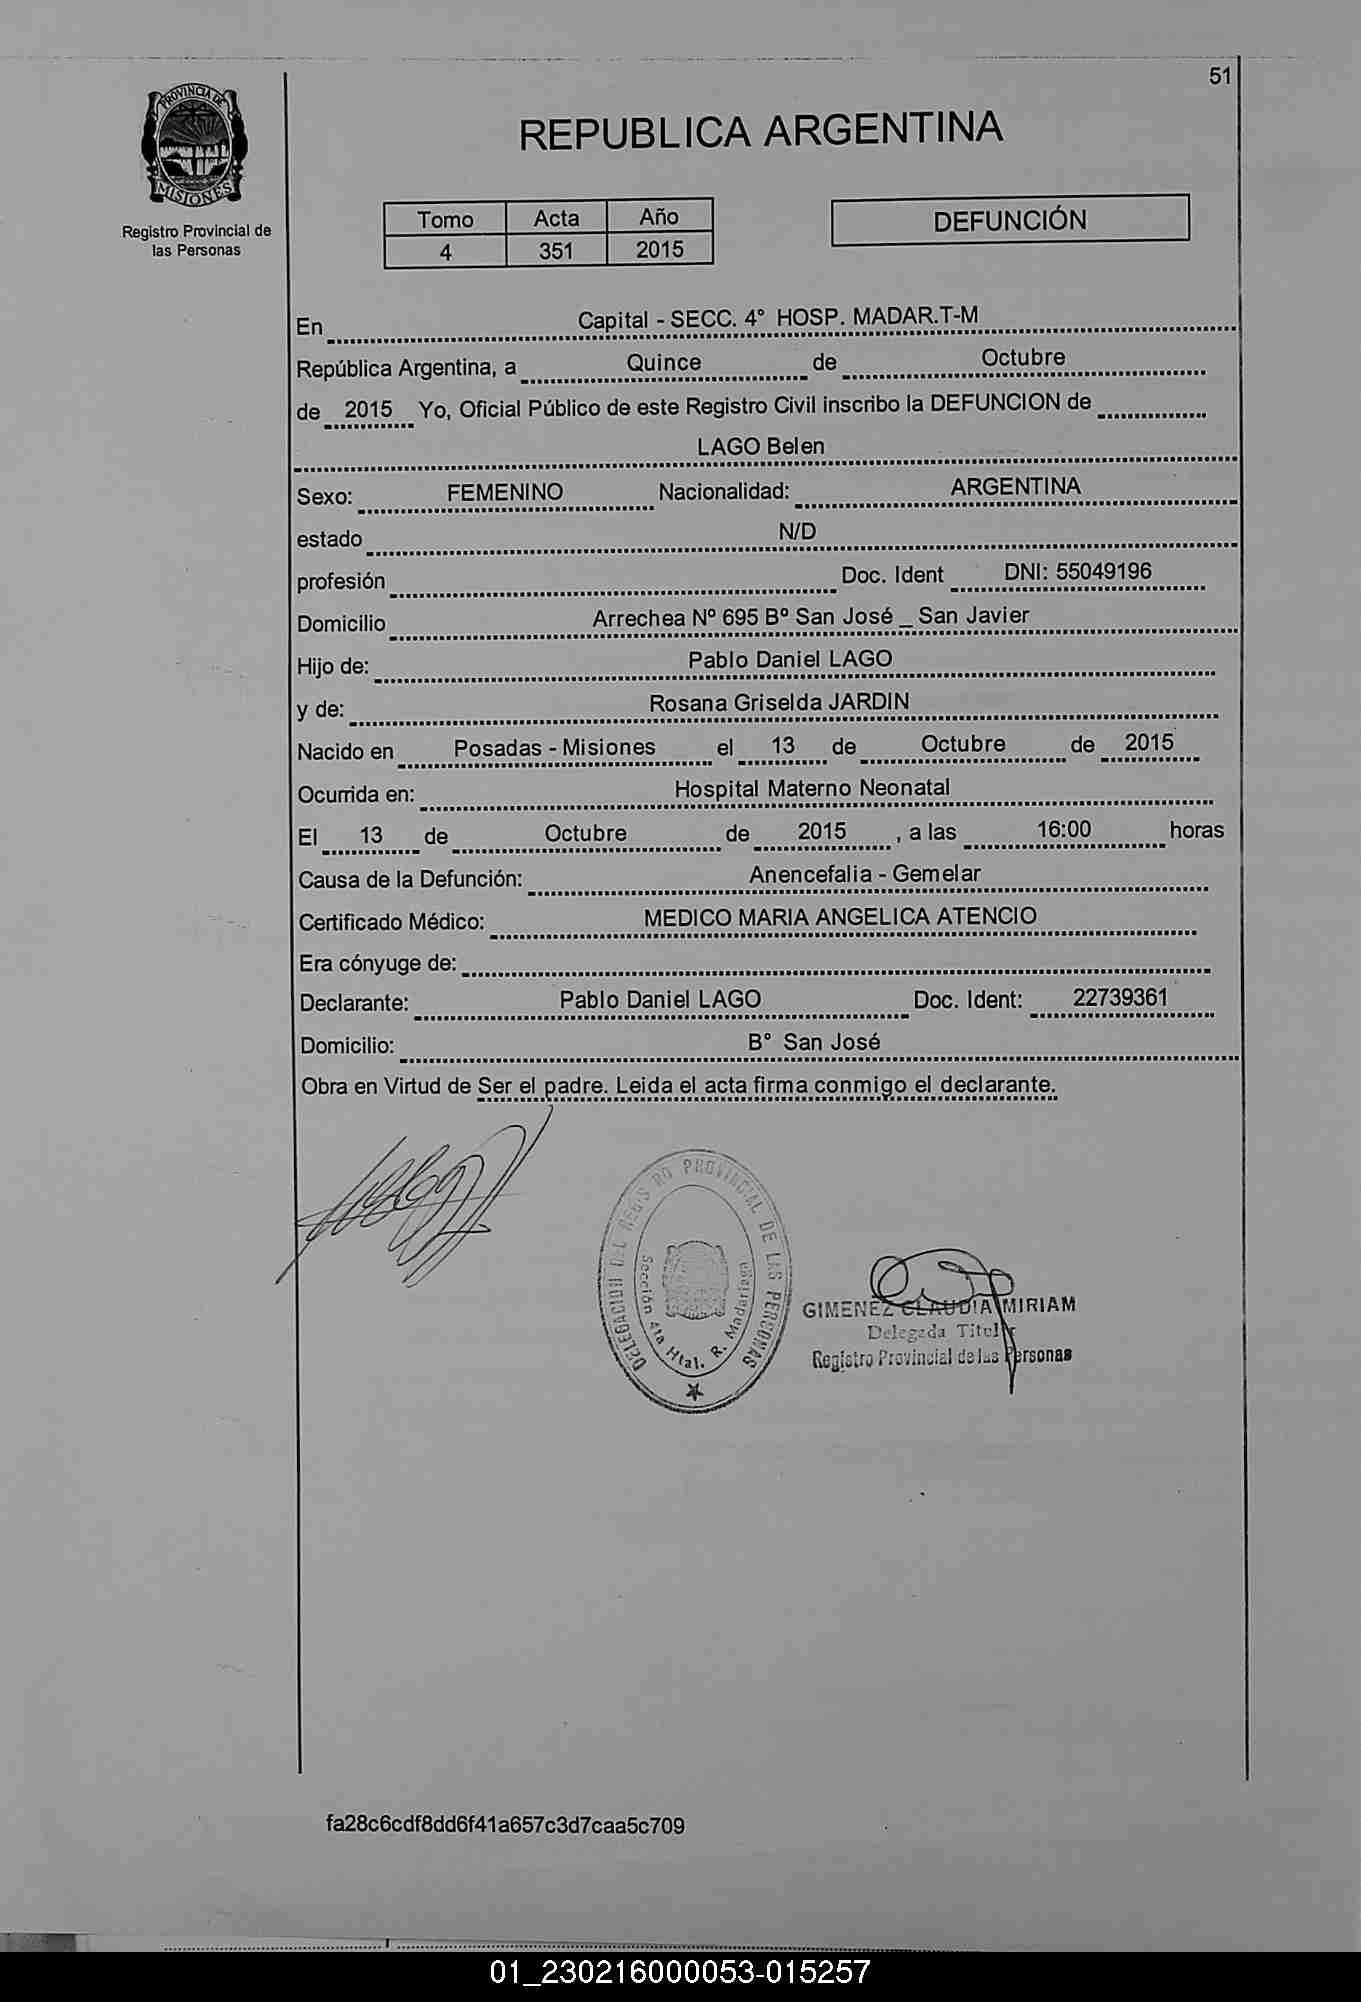 51
PROVINCIA DE
MISIONES
Registro Provincial de
las Personas
REPUBLICA ARGENTINA
Tomo Acta Año
4 351 2015
DEFUNCIÓN
En Capital - SECC. 4° HOSP. MADAR.T-M
República Argentina, a Quince de Octubre
de 2015 Yo, Oficial Público de este Registro Civil inscribo la DEFUNCION de
LAGO Belen
Sexo: FEMENINO Nacionalidad: ARGENTINA
estado N/D
profesión Doc. Ident DNI: 55049196
Domicilio Arrechea Nº 695 Bº San José _ San Javier
Hijo de: Pablo Daniel LAGO
y de: Rosana Griselda JARDIN
Nacido en Posadas - Misiones el 13 de Octubre de 2015
Ocurrida en: Hospital Materno Neonatal
El 13 de Octubre de 2015 , a las 16:00 horas
Causa de la Defunción: Anencefalia - Gemelar
Certificado Médico: MEDICO MARIA ANGELICA ATENCIO
Era cónyuge de:
Declarante: Pablo Daniel LAGO Doc. Ident: 22739361
Domicilio: B° San José
Obra en Virtud de Ser el padre. Leida el acta firma conmigo el declarante.
DELEGACION DEL REGIS RO PROVINCIAL DE LAS PERSONAS
Sección 4ta Htal. R. Madariaga
GIMENEZ CLAUDIA MIRIAM
Delegada Titular
Registro Provincial de las Personas
fa28c6cdf8dd6f41a657c3d7caa5c709
01_230216000053-015257